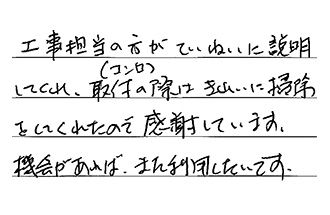 工事担当の方がていねいに説明
(コンロ)
してくれ、取付の際はきれいに掃除
をしてくれたので感謝しています。
機会があれば、また利用したいです。